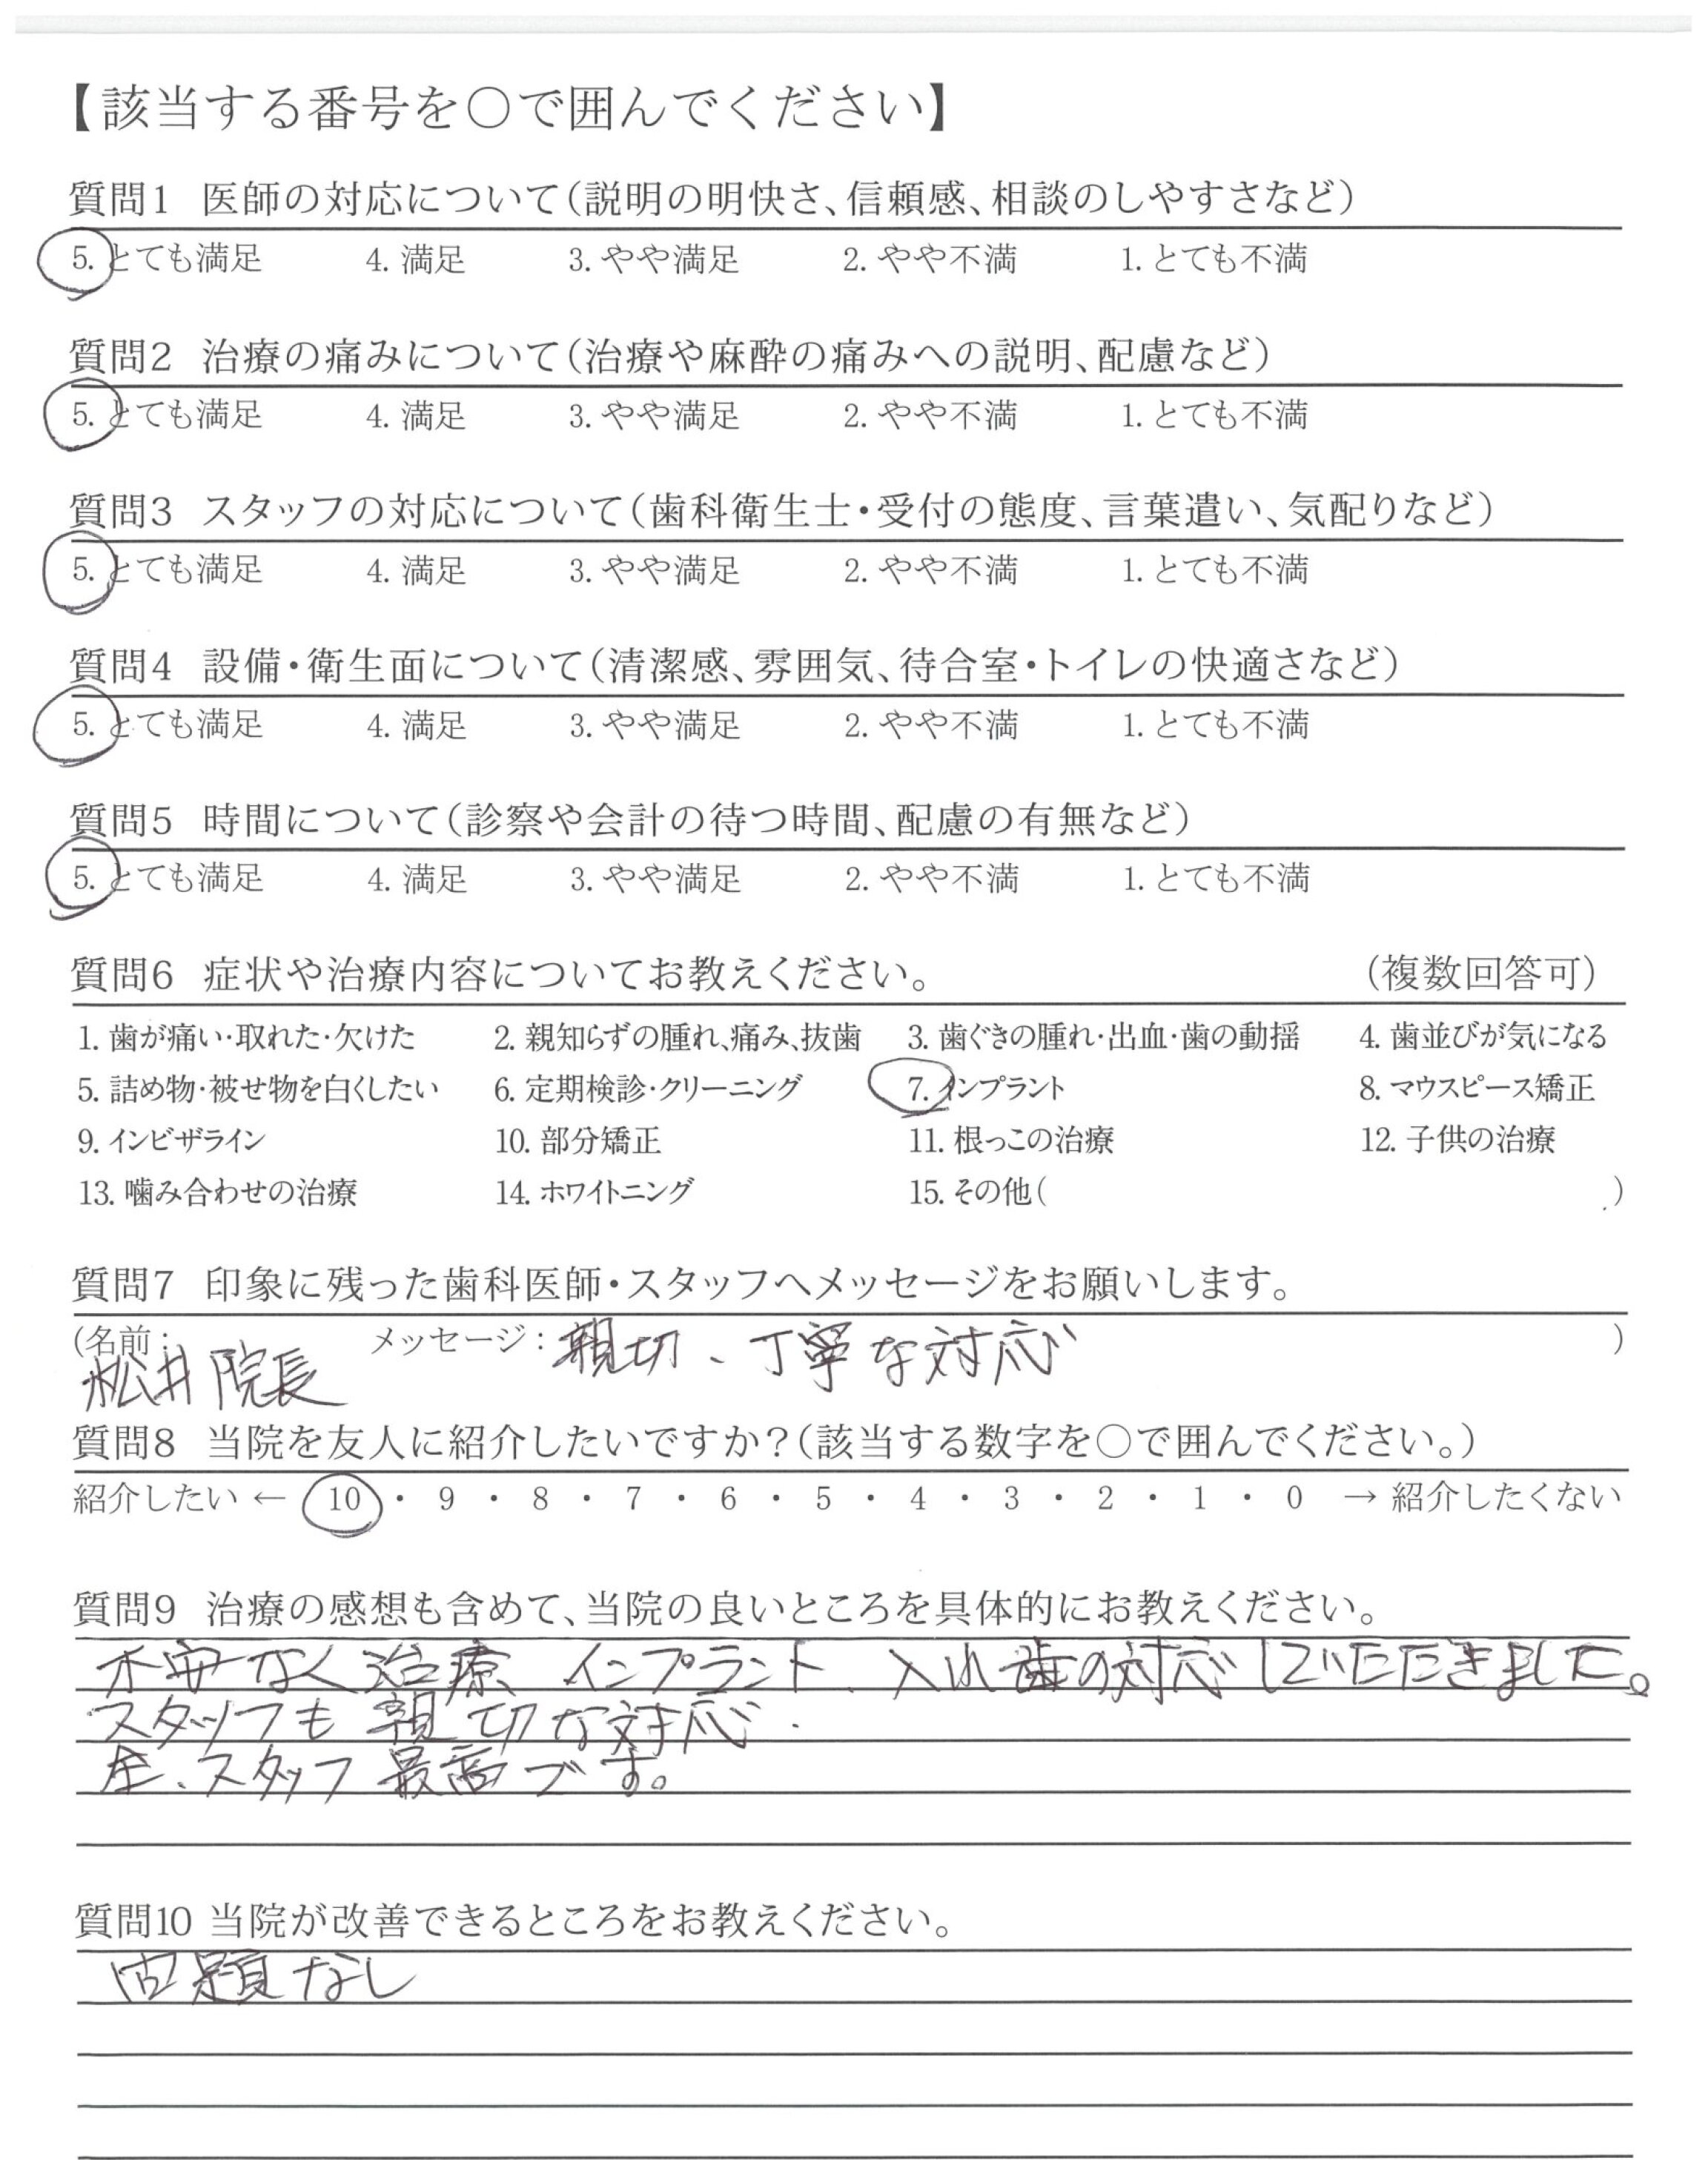 【該当する番号を○で囲んでください】
質問1 医師の対応について(説明の明快さ、信頼感、相談のしやすさなど)
5. とても満足 4. 満足 3. やや満足 2. やや不満 1. とても不満
質問2 治療の痛みについて(治療や麻酔の痛みへの説明、配慮など)
5. とても満足 4. 満足 3. やや満足 2. やや不満 1. とても不満
質問3 スタッフの対応について(歯科衛生士・受付の態度、言葉遣い、気配りなど)
5. とても満足 4. 満足 3. やや満足 2. やや不満 1. とても不満
質問4 設備・衛生面について(清潔感、雰囲気、待合室・トイレの快適さなど)
5. とても満足 4. 満足 3. やや満足 2. やや不満 1. とても不満
質問5 時間について(診察や会計の待つ時間、配慮の有無など)
5. とても満足 4. 満足 3. やや満足 2. やや不満 1. とても不満
質問6 症状や治療内容についてお教えください。 (複数回答可)
1. 歯が痛い・取れた・欠けた 2. 親知らずの腫れ、痛み、抜歯 3. 歯ぐきの腫れ・出血・歯の動揺 4. 歯並びが気になる
5. 詰め物・被せ物を白くしたい 6. 定期検診・クリーニング 7. インプラント 8. マウスピース矯正
9. インビザライン 10. 部分矯正 11. 根っこの治療 12. 子供の治療
13. 噛み合わせの治療 14. ホワイトニング 15. その他( )
質問7 印象に残った歯科医師・スタッフへメッセージをお願いします。
(名前: 松井院長 メッセージ: 親切、丁寧な対応 )
質問8 当院を友人に紹介したいですか?(該当する数字を○で囲んでください。)
紹介したい ← 10 ・ 9 ・ 8 ・ 7 ・ 6 ・ 5 ・ 4 ・ 3 ・ 2 ・ 1 ・ 0 → 紹介したくない
質問9 治療の感想も含めて、当院の良いところを具体的にお教えください。
不安なく治療、インプラント、入れ歯の対応していただきました。
スタッフも親切な対応.
全、スタッフ最高です。
質問10 当院が改善できるところをお教えください。
問題なし